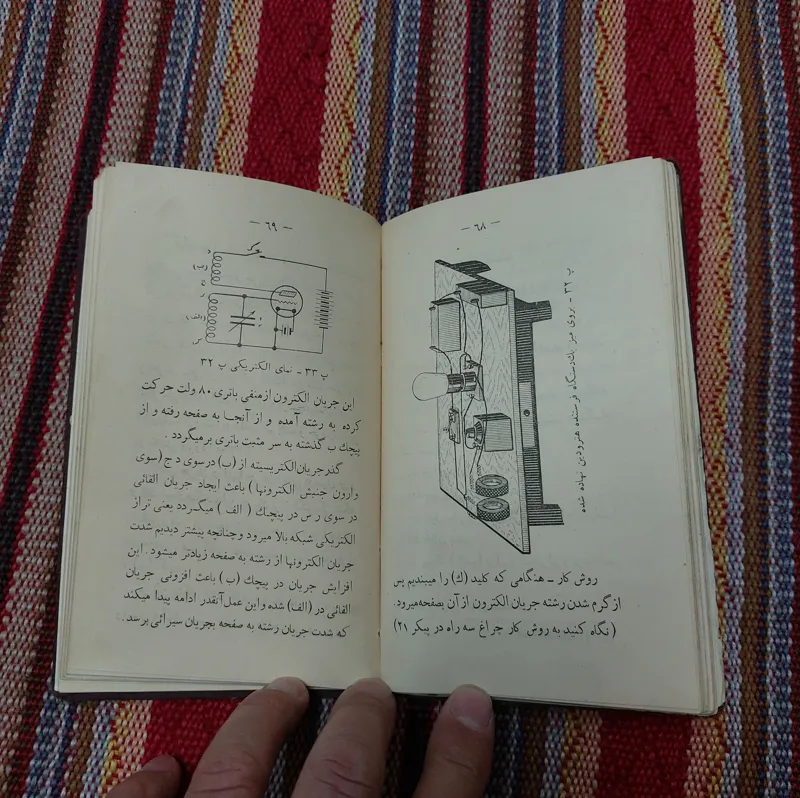 — ٦٨ —
پ ٣٢ - بروی میز یك دستگاه فرستنده هترودین نهاده شده
روش کار - هنگامی که کلید (ك) را میبندیم پس
از گرم شدن رشته جریان الکترون از آن بصفحه میرود.
(نگاه کنید به روش کار چراغ سه راه در پیکر ٢١)
— ٦٩ —
ك
د
(ب)
ج
ر
(الف)
س
پ ٣٣ - نمای الکتریکی پ ٣٢
این جریان الکترون از منفی باتری ٨٠ ولت حرکت
کرده به رشته آمده و از آنجا به صفحه رفته و از
پیچك ب گذشته به سر مثبت باتری برمیگردد.
گذر جریان الکتریسیته از (ب) در سوی د ج (سوی
وارون جنبش الکترونها) باعث ایجاد جریان القائی
در سوی ر س در پیچك (الف) میگردد یعنی تراز
الکتریکی شبکه بالا میرود و چنانچه پیشتر دیدیم شدت
جریان الکترونها از رشته به صفحه زیادتر میشود. این
افزایش جریان در پیچك (ب) باعث افزونی جریان
القائی در (الف) شده و این عمل آنقدر ادامه پیدا میکند
که شدت جریان رشته به صفحه بجریان سیرائی برسد.